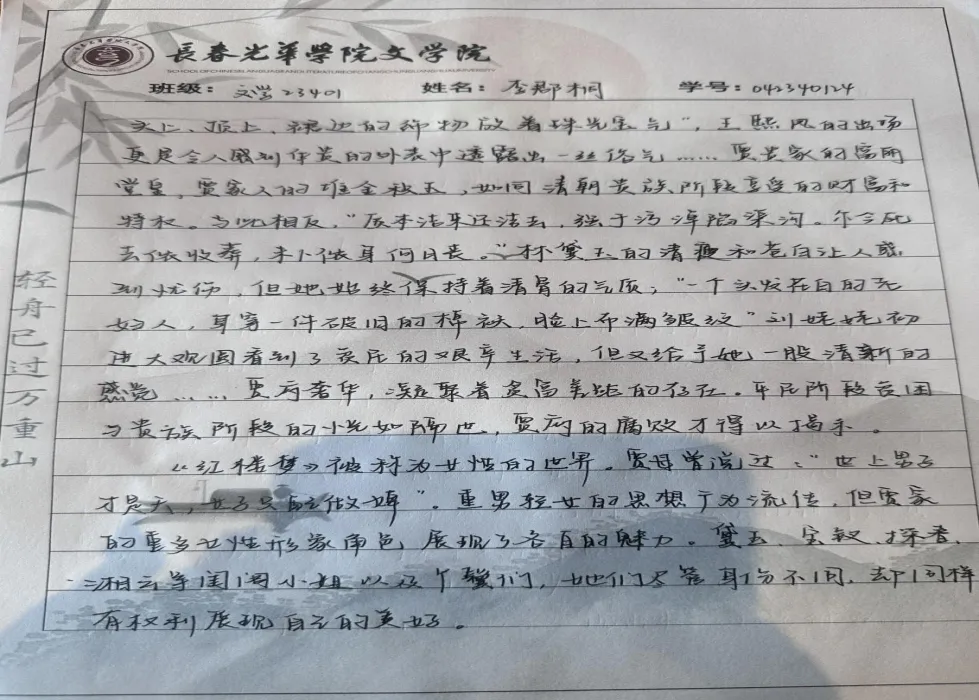 長春光華學院文学院
SCHOOL OF CHINESE LANGUAGE AND LITERATURE OF CHANGCHUN GUANGHUA UNIVERSITY
班級: 文学23401 姓名: 李郡桐 学号: 042340124
头上、顶上、裙边的饰物放着珠光宝气”,王熙凤的出场
更是令人感到华贵的外表中透露出一丝俗气……贾贵家的富丽
堂皇,贾家人的堆金砌玉,如同清朝贵族阶段享受的财富和
特权。与此相反,“质本洁来还洁去,强于污淖陷渠沟。尔今死
去侬收葬,未卜侬身何日丧。”林黛玉的清瘦和苍白让人感
到忧伤,但她始终保持着清骨的气质;“一个头发花白的老
妇人,身穿一件破旧的棉袄,脸上布满皱纹”刘姥姥初
进大观园看到了农民的艰辛生活,但又给予她一股清新的
感觉……贾府奢华,凝聚着贫富差距的存在。平民阶段贫困
与贵族阶段的时光如隔世,贾府的腐败才得以揭示。
《红楼梦》被称为女性的世界。贾母曾说过:“世上男子
才是天,女子只能做婢”。重男轻女的思想广为流传,但贾家
的重多女性形象角色展现了各自的魅力。黛玉、宝钗、探春、
湘云等闺阁小姐以及丫鬟们,她们尽管身份不同,却同样
有权利展现自己的美好。
轻舟已过万重山